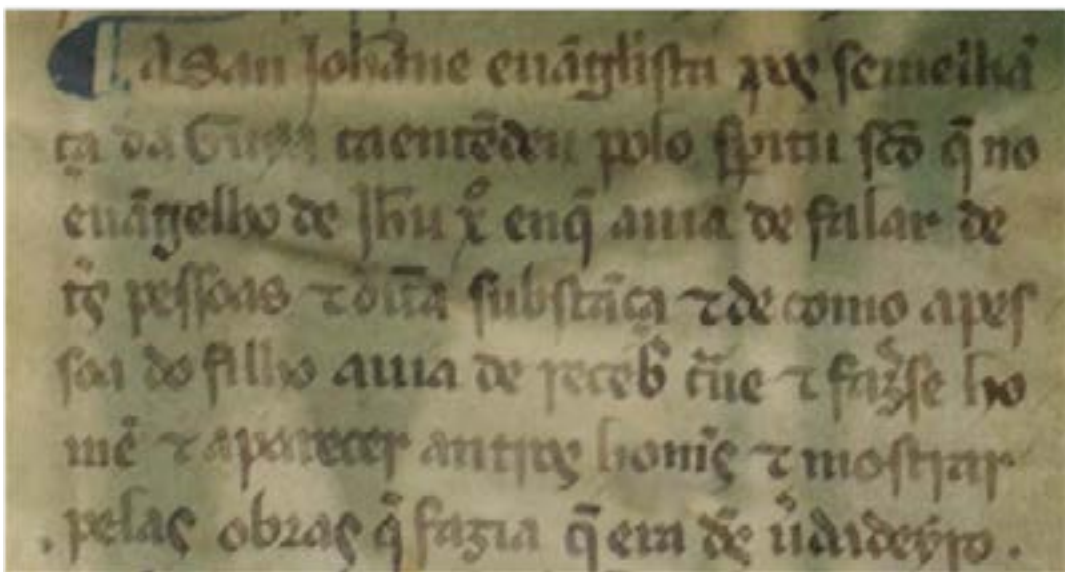 ¶ A San Johãne euãglista pus semelhã
ça da ca entẽdeu polo sp̃itu scõ q̃ no
euãgelho de Jhũ xº̃ en q̃ auia de falar de
tˢ̃ pessoas ⁊ dũa substãça ⁊ de como a pes
soa do filho auia de receb̾ cãne ⁊ faz̾se ho
mẽ ⁊ aparecer antros homẽs ⁊ mostrar
pelas obras q̃ fazia q̃ era dẽs u̾dadeyro .